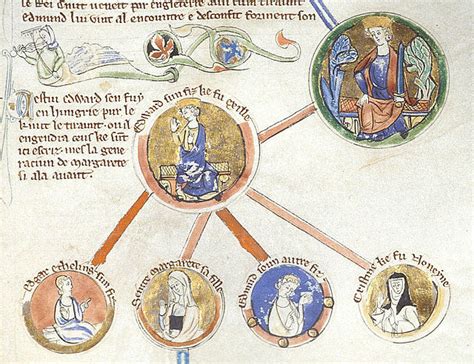 le Rei Cnut veneit par engletere
edmund lui vint al encontre e desconfit forment son
Cestui edward sen fuy
en hungrie pur le
knut le tiraunt. ou il
engendra ceus ke sunt
ici escriz. mes la gene
raciun de margarete
si ala avant.
Edward sun fiz ke fu exille
Edgar etheling sun fiz
Seinte margarete sa fille
Edmund soun autre fiz
Cristine ke fu Noneyne